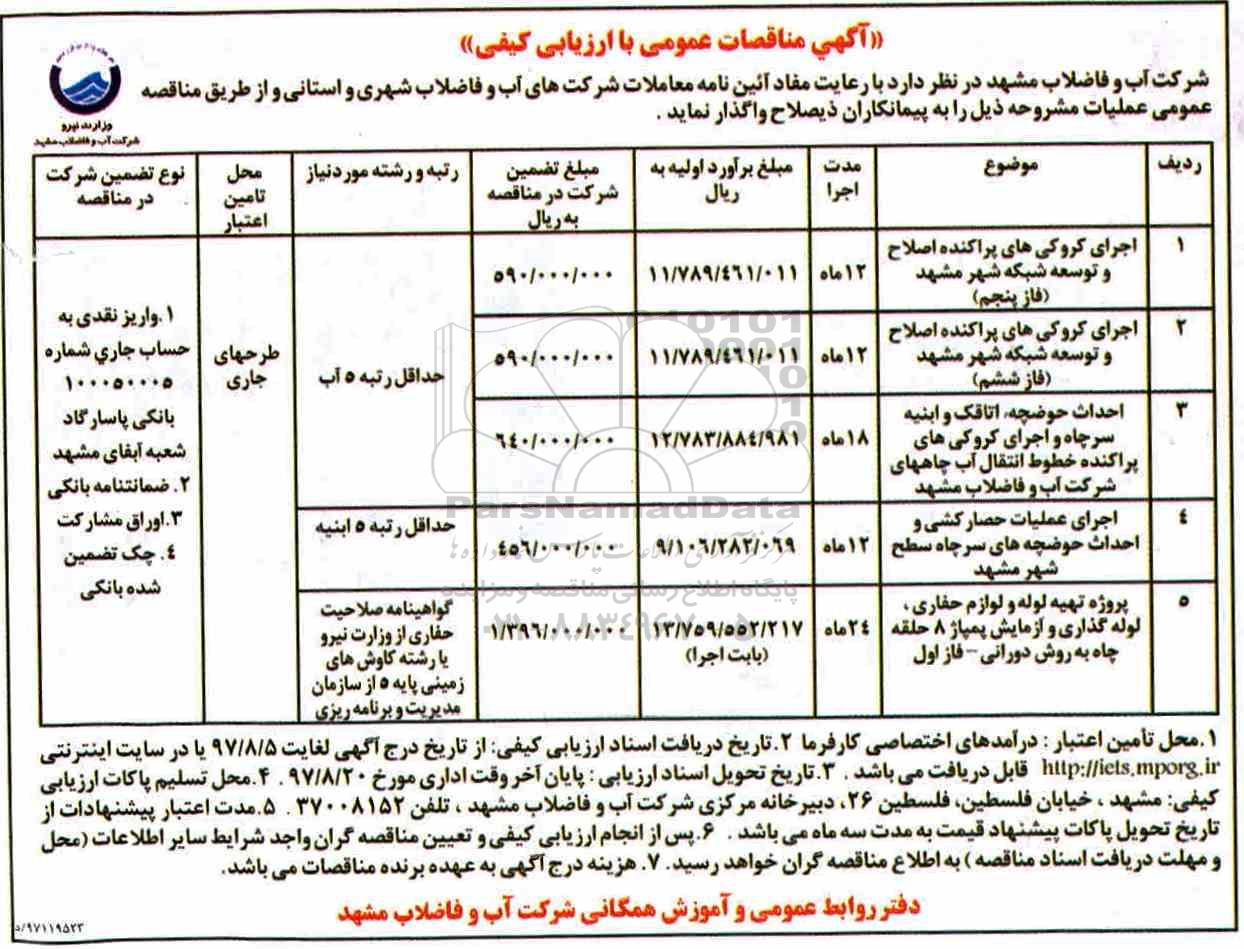 «آگهي مناقصات عمومی با ارزیابی کیفی»
وزارت نیرو
شرکت آب و فاضلاب مشهد
شرکت آب و فاضلاب مشهد در نظر دارد با رعایت مفاد آئین نامه معاملات شرکت های آب و فاضلاب شهری و استانی و از طریق مناقصه
عمومی عملیات مشروحه ذیل را به پیمانکاران ذیصلاح واگذار نماید .
ردیف
موضوع
مدت
اجرا
مبلغ برآورد اولیه به
ریال
مبلغ تضمین
شرکت در مناقصه
به ریال
رتبه و رشته مورد نیاز
محل
تامین
اعتبار
نوع تضمین شرکت
در مناقصه
۱
اجرای کروکی های پراکنده اصلاح
و توسعه شبکه شهر مشهد
(فاز پنجم)
۱۲ماه
۱۱/۷۸۹/٤٦۱/۰۱۱
۵۹۰/۰۰۰/۰۰۰
۲
اجرای کروکی های پراکنده اصلاح
و توسعه شبکه شهر مشهد
(فاز ششم)
۱۲ماه
۱۱/۷۸۹/٤٦۱/۰۱۱
۵۹۰/۰۰۰/۰۰۰
حداقل رتبه ۵ آب
۳
احداث حوضچه، اتاقک و ابنیه
سرچاه و اجرای کروکی های
پراکنده خطوط انتقال آب چاههای
شرکت آب و فاضلاب مشهد
۱۸ماه
۱۲/۷۸۳/۸۸٤/۹۸۱
٦٤۰/۰۰۰/۰۰۰
٤
اجرای عملیات حصارکشی و
احداث حوضچه های سرچاه سطح
شهر مشهد
۱۲ماه
۹/۱۰٦/۲۸۲/۰٦۹
٤۵٦/۰۰۰/۰۰۰
حداقل رتبه ۵ ابنیه
۵
پروژه تهیه لوله و لوازم حفاری ،
لوله گذاری و آزمایش پمپاژ ۸ حلقه
چاه به روش دورانی – فاز اول
۲٤ماه
۱۳/۷۵۹/۵۵۲/۲۱۷
(بابت اجرا)
۱/۳۹٦/۰۰۰/۰۰۰
گواهینامه صلاحیت
حفاری از وزارت نیرو
یا رشته کاوش های
زمینی پایه ۵ از سازمان
مدیریت و برنامه ریزی
طرحهای
جاری
۱.واریز نقدی به
حساب جاري شماره
۱۰۰۰۵۰۰۰۵
بانکی پاسارگاد
شعبه آبفای مشهد
۲. ضمانتنامه بانکی
۳.اوراق مشارکت
٤. چک تضمین
شده بانکی
ParsNamadData
پایگاه اطلاع رسانی مناقصه و مزایده
۱.محل تأمین اعتبار : درآمدهای اختصاصی کارفرما ۲.تاریخ دریافت اسناد ارزیابی کیفی: از تاریخ درج آگهی لغایت ۹۷/۸/۵ یا در سایت اینترنتی
http://iets.mporg.ir قابل دریافت می باشد . ۳.تاریخ تحویل اسناد ارزیابی : پایان آخر وقت اداری مورخ ۹۷/۸/۲۰ . ٤.محل تسلیم پاکات ارزیابی
کیفی: مشهد ، خیابان فلسطین، فلسطین ۲٦، دبیرخانه مرکزی شرکت آب و فاضلاب مشهد ، تلفن ۳۷۰۰۸۱۵۲ . ۵.مدت اعتبار پیشنهادات از
تاریخ تحویل پاکات پیشنهاد قیمت به مدت سه ماه می باشد . ٦.پس از انجام ارزیابی کیفی و تعیین مناقصه گران واجد شرایط سایر اطلاعات (محل
و مهلت دریافت اسناد مناقصه ) به اطلاع مناقصه گران خواهد رسید. ۷. هزینه درج آگهی به عهده برنده مناقصات می باشد.
دفتر روابط عمومی و آموزش همگانی شرکت آب و فاضلاب مشهد
۹۷۱۱۹۵۲۳/د